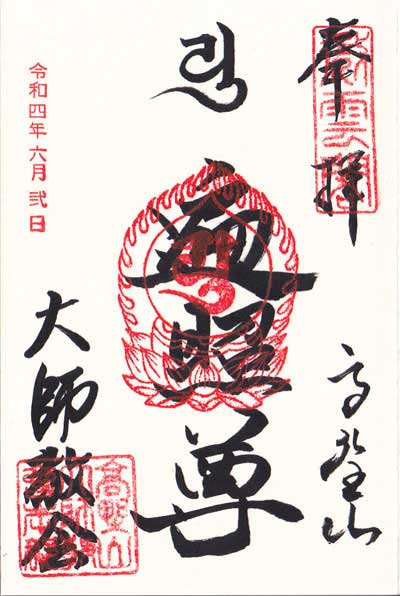 奉拝
高野山
遍照尊
大師教会
令和四年六月弐日